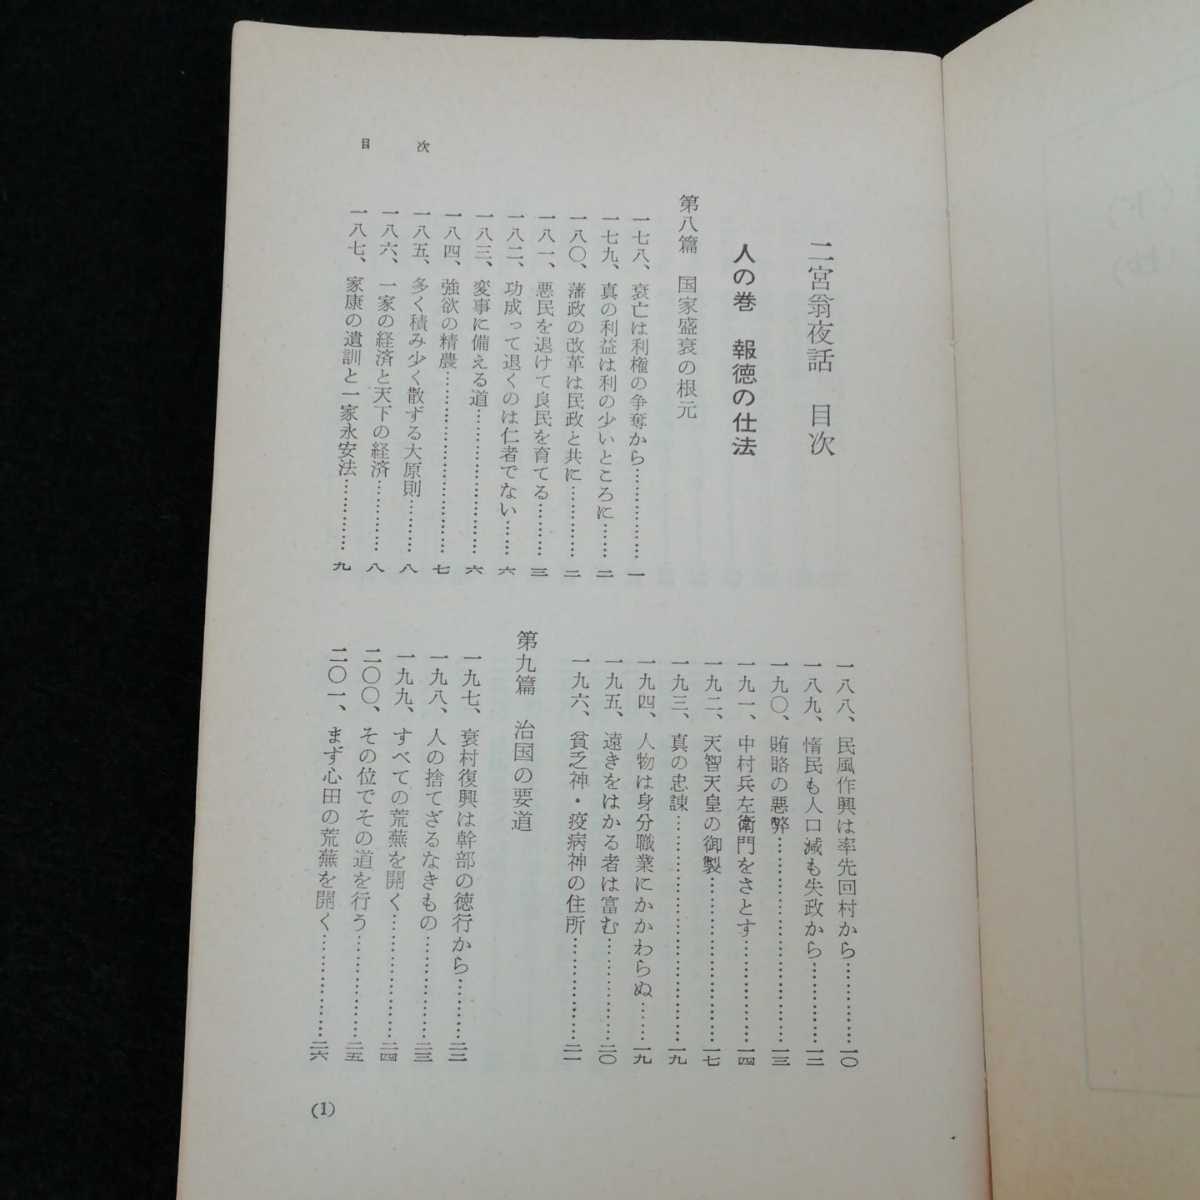 目次
二宮翁夜話 目次
人の巻 報徳の仕法
第八篇 国家盛衰の根元
一七八、衰亡は利権の争奪から………………一
一七九、真の利益は利の少いところに………二
一八〇、藩政の改革は民政と共に……………二
一八一、悪民を退けて良民を育てる…………三
一八二、功成って退くのは仁者でない………六
一八三、変事に備える道………………………六
一八四、強欲の精農……………………………七
一八五、多く積み少く散ずる大原則…………八
一八六、一家の経済と天下の経済……………八
一八七、家康の遺訓と一家永安法……………九
一八八、民風作興は率先回村から……………一〇
一八九、惰民も人口減も失政から……………一二
一九〇、賄賂の悪弊……………………………一三
一九一、中村兵左衛門をさとす………………一四
一九二、天智天皇の御製………………………一七
一九三、真の忠諫………………………………一九
一九四、人物は身分職業にかかわらぬ………一九
一九五、遠きをはかる者は富む………………二〇
一九六、貧乏神・疫病神の住所………………二一
第九篇 治国の要道
一九七、衰村復興は幹部の徳行から…………二二
一九八、人の捨てざるなきもの………………二三
一九九、すべての荒蕪を開く…………………二四
二〇〇、その位でその道を行う………………二五
二〇一、まず心田の荒蕪を開く………………二六
(1)